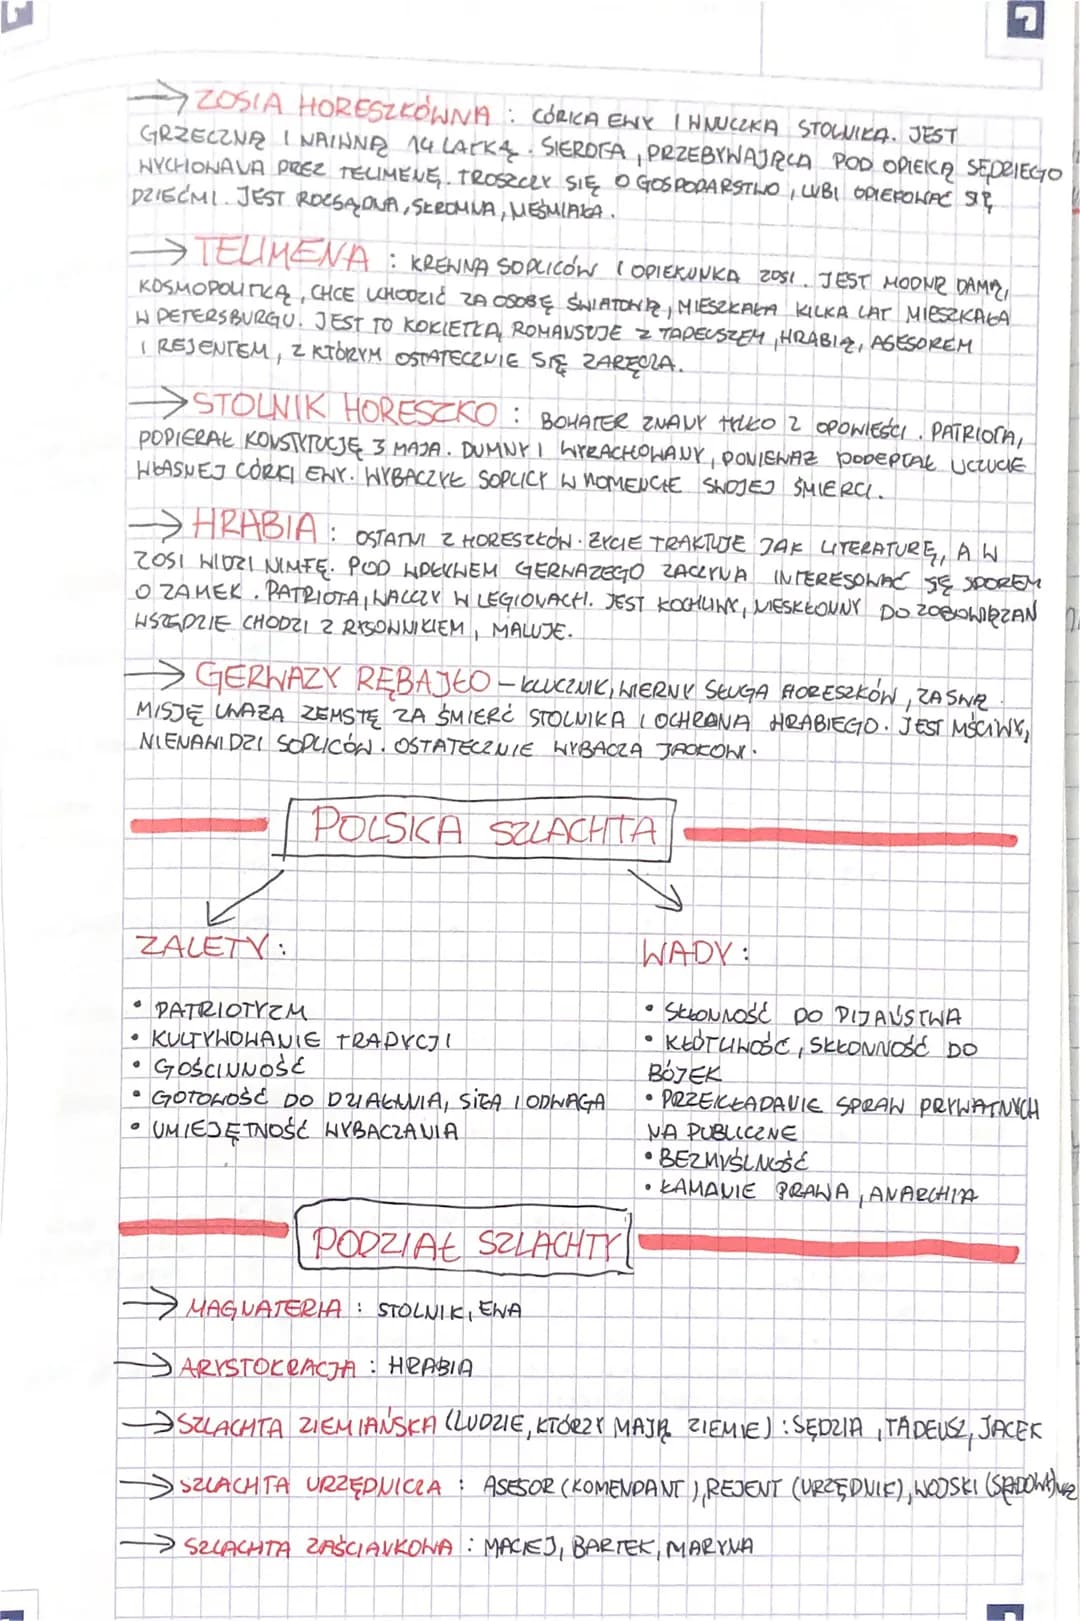 → ZOSIA HORESZKÓWNA : CÓRKA EWY I WNUCZKA STOLNIKA. JEST
GRZECZNĄ I NAIWNĄ 14 LATKĄ. SIEROTA, PRZEBYWAJĄCA POD OPIEKĄ SĘDZIEGO
WYCHOWANA PREZ TELIMENĘ. TROSZCZY SIĘ O GOSPODARSTWO, LUBI OPIEKOWAĆ SIĘ
DZIEĆMI. JEST ROZSĄDNA, SKROMNA, NIEŚMIAŁA.
→ TELIMENA : KREWNA SOPLICÓW I OPIEKUNKA ZOSI. JEST MODNĄ DAMĄ,
KOSMOPOLITKĄ, CHCE UCHODZIĆ ZA OSOBĘ ŚWIATOWĄ, MIESZKAŁA KILKA LAT MIESZKAŁA
W PETERSBURGU. JEST TO KOKIETKA, ROMANSUJE Z TADEUSZEM, HRABIĄ, ASESOREM
I REJENTEM, Z KTÓRYM OSTATECZNIE SIĘ ZARĘCZA.
→ STOLNIK HORESZKO : BOHATER ZNANY TYLKO Z OPOWIEŚCI. PATRIOTA,
POPIERAŁ KONSTYTUCJĘ 3 MAJA. DUMNY I WYRACHOWANY, PONIEWAŻ PODEPTAŁ UCZUCIE
WŁASNEJ CÓRKI EWY. WYBACZYŁ SOPLICY W MOMENCIE SWOJEJ ŚMIERCI.
→ HRABIA : OSTATNI Z HORESZKÓW. ŻYCIE TRAKTUJE JAK LITERATURĘ, A W
ZOSI WIDZI NIMFĘ. POD WPŁYWEM GERWAZEGO ZACZYNA INTERESOWAĆ SIĘ SPOREM
O ZAMEK. PATRIOTA, WALCZY W LEGIONACH. JEST KOCHLIWY, NIESKŁONNY DO ZOBOWIĄZAŃ
WSZĘDZIE CHODZI Z RYSOWNIKIEM, MALUJE.
→ GERWAZY RĘBAJŁO – KLUCZNIK, WIERNY SŁUGA HORESZKÓW, ZA SWĄ
MISJĘ UWAŻA ZEMSTĘ ZA ŚMIERĆ STOLNIKA I OCHRONA HRABIEGO. JEST MŚCIWY,
NIENAWIDZI SOPLICÓW. OSTATECZNIE WYBACZA JACKOWI.
POLSKA SZLACHTA
ZALETY:
• PATRIOTYZM
• KULTYWOWANIE TRADYCJI
• GOŚCINNOŚĆ
• GOTOWOŚĆ DO DZIAŁANIA, SIŁA I ODWAGA
• UMIEJĘTNOŚĆ WYBACZANIA
WADY:
• SKŁONNOŚĆ DO PIJAŃSTWA
• KŁÓTLIWOŚĆ, SKŁONNOŚĆ DO
BÓJEK
• PRZEKŁADANIE SPRAW PRYWATNYCH
NA PUBLICZNE
• BEZMYŚLNOŚĆ
• ŁAMANIE PRAWA, ANARCHIA
PODZIAŁ SZLACHTY
→ MAGNATERIA : STOLNIK, EWA
→ ARYSTOKRACJA : HRABIA
→ SZLACHTA ZIEMIAŃSKA (LUDZIE, KTÓRZY MAJĄ ZIEMIE) : SĘDZIA, TADEUSZ, JACEK
→ SZLACHTA URZĘDNICZA : ASESOR (KOMENDANT), REJENT (URZĘDNIK), WOJSKI
→ SZLACHTA ZAŚCIANKOWA : MACIEJ, BARTEK, MARYNA